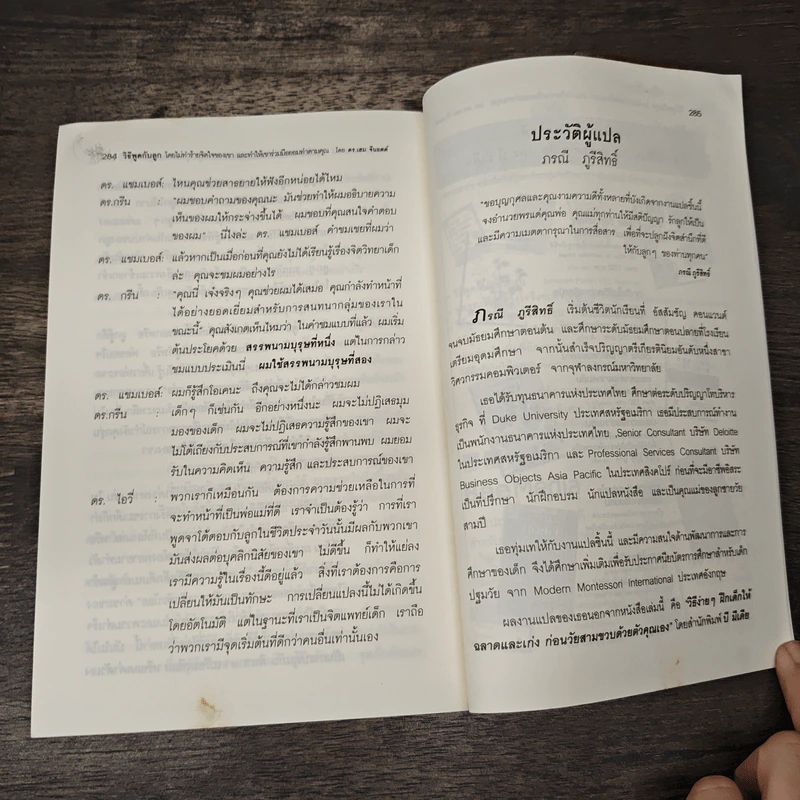 284 วิธีพูดกับลูก โดยไม่ทำร้ายจิตใจของเขา และทำให้เขาร่วมมือยอมทำตามคุณ โดย ดร.เฮม จีนอตต์
ดร. แชมเบอส์: ไหนคุณช่วยสาธยายให้ฟังอีกหน่อยได้ไหม
ดร.กรีน : "ผมชอบคำถามของคุณนะ มันช่วยทำให้ผมอธิบายความ
เห็นของผมให้กระจ่างขึ้นได้ ผมชอบที่คุณสนใจคำตอบ
ของผม" นี่ไงล่ะ ดร. แชมเบอส์ คำชมเชยที่ผมว่า
ดร. แชมเบอส์: แล้วหากเป็นเมื่อก่อนที่คุณยังไม่ได้เรียนรู้เรื่องจิตวิทยาเด็ก
ล่ะ คุณจะชมผมอย่างไร
ดร. กรีน : "คุณนี่ เจ๋งจริงๆ คุณช่วยผมได้เสมอ คุณกำลังทำหน้าที่
ได้อย่างยอดเยี่ยมสำหรับการสนทนากลุ่มของเราใน
ขณะนี้" คุณสังเกตเห็นไหมว่า ในคำชมแบบที่แล้ว ผมเริ่ม
ต้นประโยคด้วย สรรพนามบุรุษที่หนึ่ง แต่ในการกล่าว
ชมแบบประเมินนี่ ผมใช้สรรพนามบุรุษที่สอง
ดร. แชมเบอส์: ผมก็รู้สึกโอเคนะ ถึงคุณจะไม่ได้กล่าวชมผม
ดร.กรีน : เด็กๆ ก็เช่นกัน อีกอย่างหนึ่งนะ ผมจะไม่ปฏิเสธมุม
มองของเด็ก ผมจะไม่ปฏิเสธความรู้สึกของเขา ผมจะ
ไม่โต้เถียงกับประสบการณ์ที่เขากำลังรู้สึกพานพบ ผมยอม
รับในความคิดเห็น ความรู้สึก และประสบการณ์ของเขา
ดร. ไอวี่ : พวกเราก็เหมือนกัน ต้องการความช่วยเหลือในการที่
จะทำหน้าที่เป็นพ่อแม่ที่ดี เราจำเป็นต้องรู้ว่า การที่เรา
พูดจาโต้ตอบกับลูกในชีวิตประจำวันนั้นมีผลกับพวกเขา
มันส่งผลต่อบุคลิกนิสัยของเขา ไม่ดีขึ้น ก็ทำให้แย่ลง
เรามีความรู้ในเรื่องนี้ดีอยู่แล้ว สิ่งที่เราต้องการคือการ
เปลี่ยนให้มันเป็นทักษะ การเปลี่ยนแปลงนี้ไม่ได้เกิดขึ้น
โดยอัตโนมัติ แต่ในฐานะที่เราเป็นจิตแพทย์เด็ก เราถือ
ว่าพวกเรามีจุดเริ่มต้นที่ดีกว่าคนอื่นเท่านั้นเอง
285
ประวัติผู้แปล
ภรณี ภูรีสิทธิ์
"ขอบุญกุศลและคุณงามความดีทั้งหลายที่บังเกิดจากงานแปลชิ้นนี้
จงอำนวยพรแด่คุณพ่อ คุณแม่ทุกท่านให้มีสติปัญญา รักลูกให้เป็น
และมีความเมตตากรุณาในการสื่อสาร เพื่อที่จะปลูกฝังจิตสำนึกที่ดี
ให้กับลูกๆ ของท่านทุกคน"
ภรณี ภูรีสิทธิ์
ภรณี ภูรีสิทธิ์ เริ่มต้นชีวิตนักเรียนที่ อัสสัมชัญ คอนแวนต์
จนจบมัธยมศึกษาตอนต้น และศึกษาระดับมัธยมศึกษาตอนปลายที่โรงเรียน
เตรียมอุดมศึกษา จากนั้นสำเร็จปริญญาตรีเกียรตินิยมอันดับหนึ่งสาขา
วิศวกรรมคอมพิวเตอร์ จากจุฬาลงกรณ์มหาวิทยาลัย
เธอได้รับทุนธนาคารแห่งประเทศไทย ศึกษาต่อระดับปริญญาโทบริหาร
ธุรกิจ ที่ Duke University ประเทศสหรัฐอเมริกา เธอมีประสบการณ์ทำงาน
เป็นพนักงานธนาคารแห่งประเทศไทย ,Senior Consultant บริษัท Deloitte
ในประเทศสหรัฐอเมริกา และ Professional Services Consultant บริษัท
Business Objects Asia Pacific ในประเทศสิงคโปร์ ก่อนที่จะมีอาชีพอิสระ
เป็นที่ปรึกษา นักฝึกอบรม นักแปลหนังสือ และเป็นคุณแม่ของลูกชายวัย
สามปี
เธอทุ่มเทให้กับงานแปลชิ้นนี้ และมีความสนใจด้านพัฒนาการและการ
ศึกษาของเด็ก จึงได้ศึกษาเพิ่มเติมเพื่อรับประกาศนียบัตรการศึกษาสำหรับเด็ก
ปฐมวัย จาก Modern Montessori International ประเทศอังกฤษ
ผลงานแปลของเธอนอกจากหนังสือเล่มนี้ คือ "วิธีง่ายๆ ฝึกเด็กให้
ฉลาดและเก่ง ก่อนวัยสามขวบด้วยตัวคุณเอง" โดยสำนักพิมพ์ บี มีเดีย